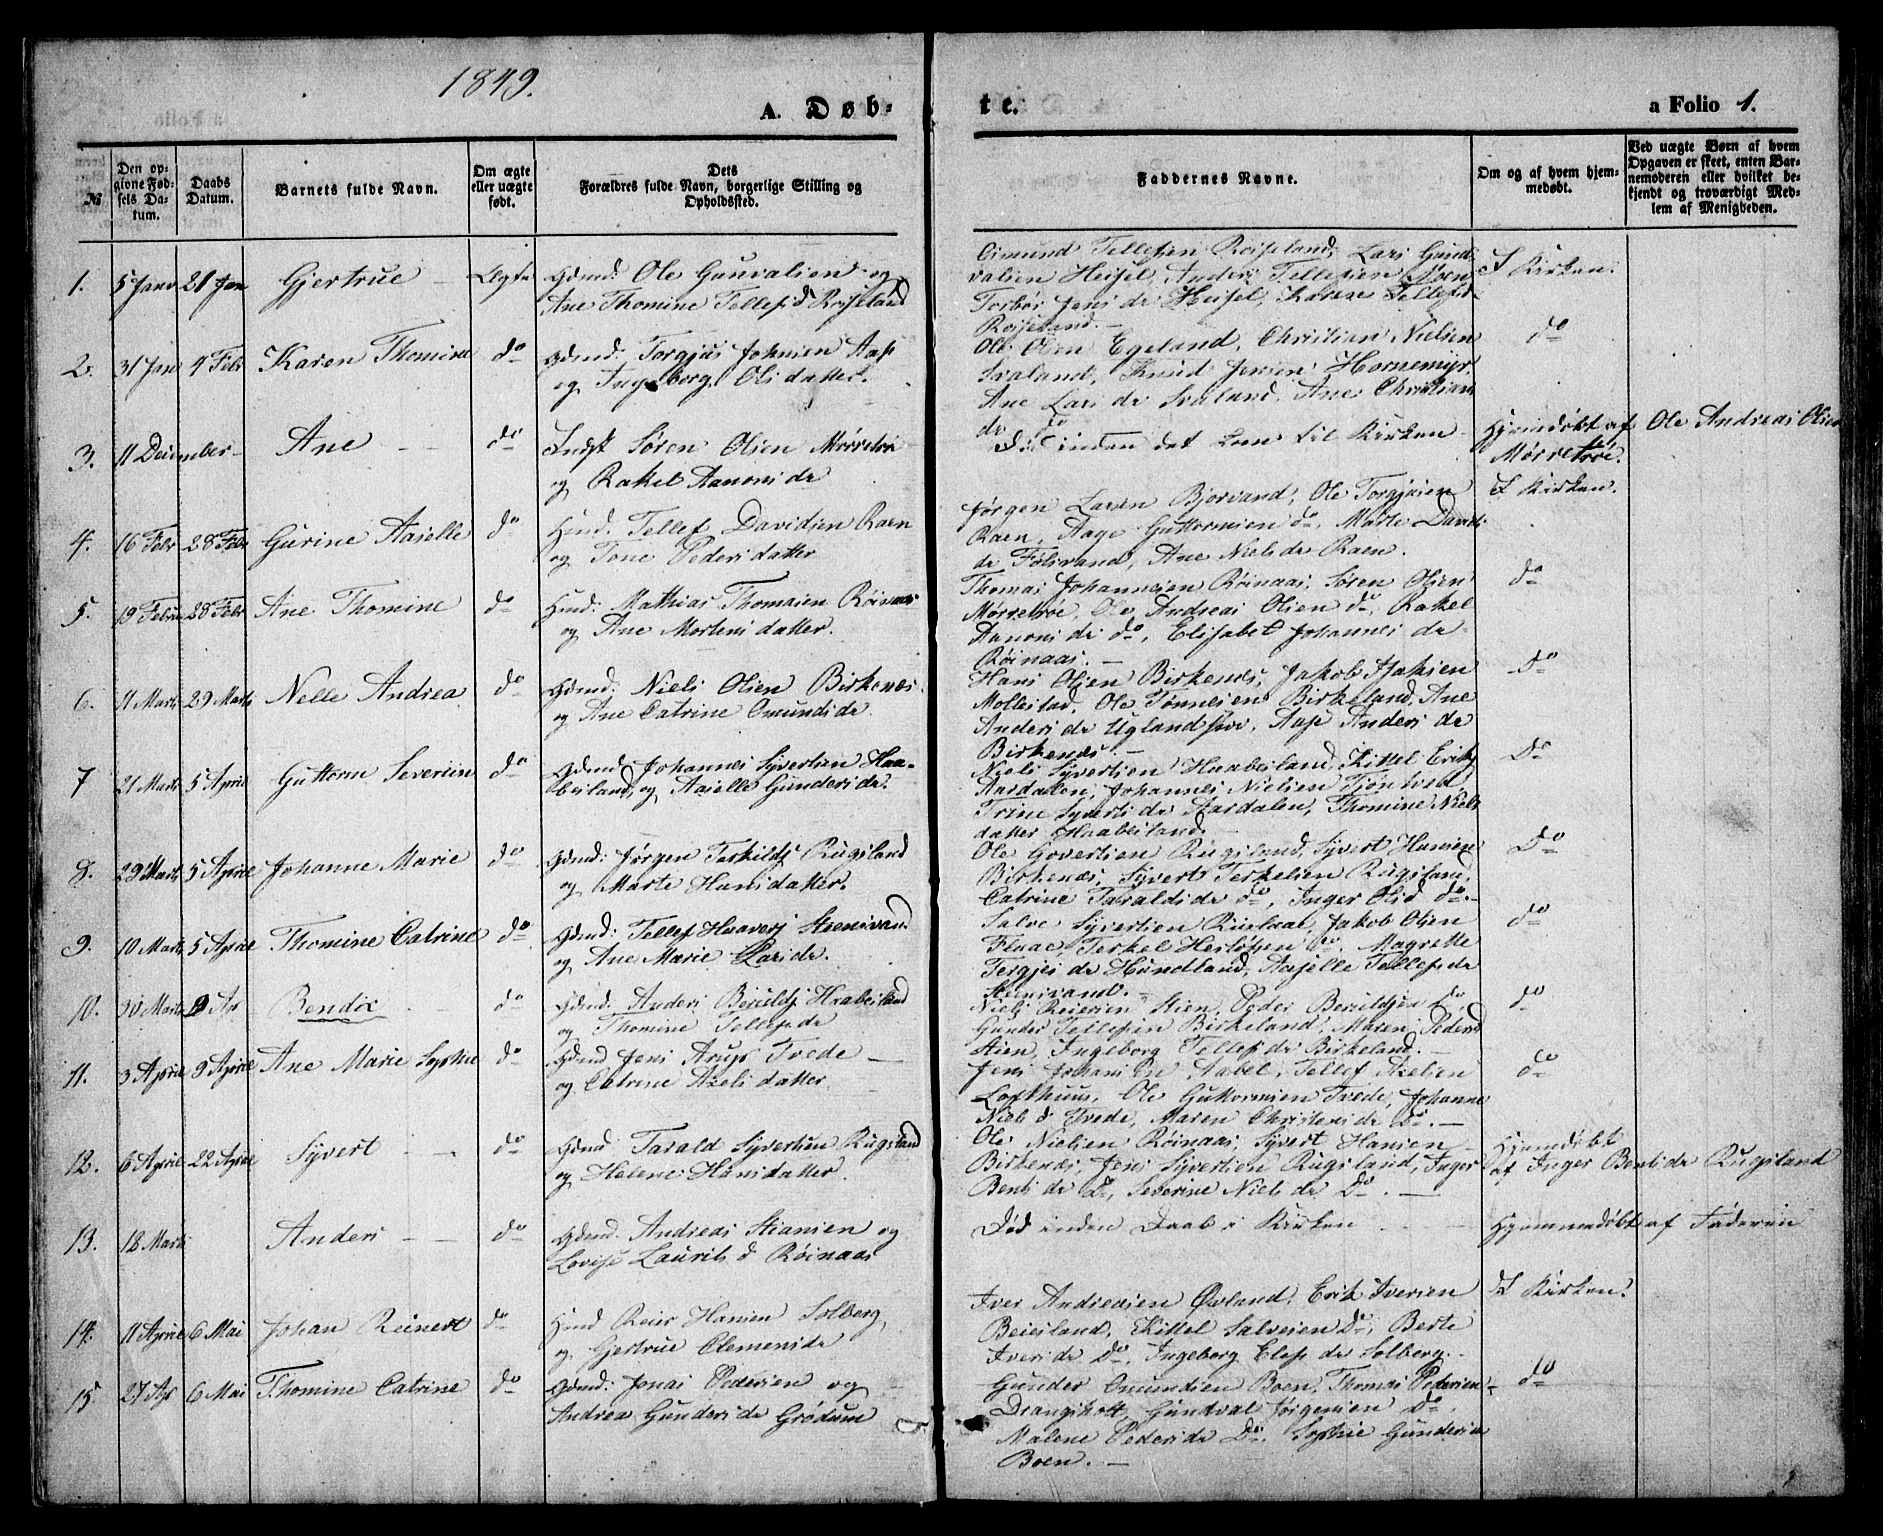 1849.
A. Døb-
te.
a Folio 1.
№
Den op-
givne Fød-
sels Da-
tum.
Daabs
Datum.
Barnets fulde Navn.
Om ægte
eller uægte
født.
Dets
Forældres fulde Navn, borgerlige Stilling og
Opholdssted.
Faddernes Navne.
Om og af hvem hjem-
medøbt.
Ved uægte Børn af hvem
Opgaven er skeet, enten Bar-
nemoderen eller hvilket be-
kjendt og troværdigt Med-
lem af Menigheden.
1. 5 Janv 21 Jan Gjertrue Ægte Gdmd: Ole Gunvalsen og
Ane Thomine Tellefsd Røiseland
Tellefsen Røiseland, Lars Gund
valsen Heisel, Anders Tellefsen Boen
Torbor Jens dr Heisel, Karen Tellefsd
Røiseland.
I Kirken.
2. 31 Jan 4 Febr Karen Thomine do Gdmd: Torgjus Johnsen Aas
og Ingeborg Olsdatter.
Ole Olsen Egeland, Christian Nielsen
Svaland, Knud Jensen Hornemyr,
Ane Lars dr Svaland, Ane Christians
dr do
do
3. 11 December Ane do Indst Søren Olsen Mørretroe
og Rakel Aanons dr
Død inden det kom til Kirken
Hjemdøbt af Ole Andreas Olsen
Mørretroe.
4. 16 Febr 28 Febr Gurine Aasille do Hmd: Tellef Davidsen Raen
og Tone Peders datter
Jørgen Larsen Bjorvand, Ole Torgjusen
Raen, Aage Guttormsen do, Marte Davids
dr Følsvand, Ane Niels dr Raen.
I Kirken.
5. 19 Febru 28 Febr Ane Thomine do Hmd: Mathias Thomasen Røinaas
og Ane Mortens datter.
Thomas Johannesen Røinaas, Søren Olsen
Mørretroe, Ole Andreas Olsen do, Rakel
Aanons dr do, Elisabet Johannes dr
Røinaas.
do
6. 11 Marts 29 Marts Nelle Andrea do Gdmd: Niels Olsen Birkenes
og Ane Catrine Omunds dr.
Hans Olsen Birkenes, Jakob Isaksen
Mollestad, Ole Tønnesen Birkeland, Ane
Anders dr Uglands, Aase Anders dr
Birkenes.
Do
7 21 Marts 5 April Guttorm Severin do Gdmd: Johannes Syvertsen Haa-
besland, og Aasille Gunders dr.
Niels Syvertsen Haabesland, Kittel Eriks
Aardalen, Johannes Nielsen Tjøntved,
Trine Syverts dr Aardalen, Thomine Niels
datter Haabesland.
Do
8. 29 Marts 5 April Johanne Marie do Gdmd: Jørgen Terkilds Rugsland
og Marte Hansdatter.
Ole Govertsen Rugsland, Syvert Hansen
Birkenes, Syvert Terkelsen Rugsland,
Catrine Taralds dr do, Inger Olsd do.
Do
9. 10 Marts 5 April Thomine Catrine do Gdmd: Tellef Haavers Stensvand
og Ane Marie Lars dr.
Salve Syvertsen, Jakob Olsen
Flaae, Terkel Herlofsen do, Magrette
Tergjes dr Hundland, Aasille Tellefs dr
Stensvand.
do
10. 30 Marts Ap Bendix do Gdmd: Anders Beruldsen Haabesland
og Thomine Tellefs dr
Niels Reiersen Stien, Peder Beruldsen do
Gunder Tellefsen Birkeland, Maren Peders
Stien, Ingeborg Tellefs dr Birkeland.
do
11. 3 April 9 April Ane Marie Sophie do Gdmd Jens Arup Tvede
og Catrine Axels datter
Jens Johansen Aabel, Tellef Axelsen
Lofthuus, Ole Guttormsen Tvede, Johanne
Niels d Tvede, Maren Christens dr Do.
do
12. 6 April 22 April Syvert do Gdmd Tarald Syvertsen Rugsland
og Helene Hansdatter.
Ole Nielsen Røinaas, Syvert Hansen
Birkenes, Jens Syvertsen Rugsland, Inger
Bents dr Do, Severine Niels dr Do.
Hjemdøbt
af Inger Bents dr Rugsland
13. 18 Marts Anders do Gdmd. Andreas Stiansen og
Lovise Laurits d Røinaas
Død inden Daab i Kirken
Hjemmedøbt af Faderen
14. 11 April 6 Mai Johan Reinert do Hmd Reier Hansen Solberg,
og Gjertrue Clemens dr
Iver Andreasen Øvland, Erik Iversen
Beiesland, Kittel Salvesen Do, Berte
Ivers dr Do, Ingeborg Elefs dr Solberg.
I Kirken.
15 27 Ap 6 Mai Thomine Catrine do Gdmd: Jonas Pedersen og
Andrea Gunders dr Grødum
Gunder Omundsen Boen, Thomas Pedersen
Drangsholt, Gundval Jørgensen do,
Malene Peders dr Do, Sophie Gunders d
Boen.
do